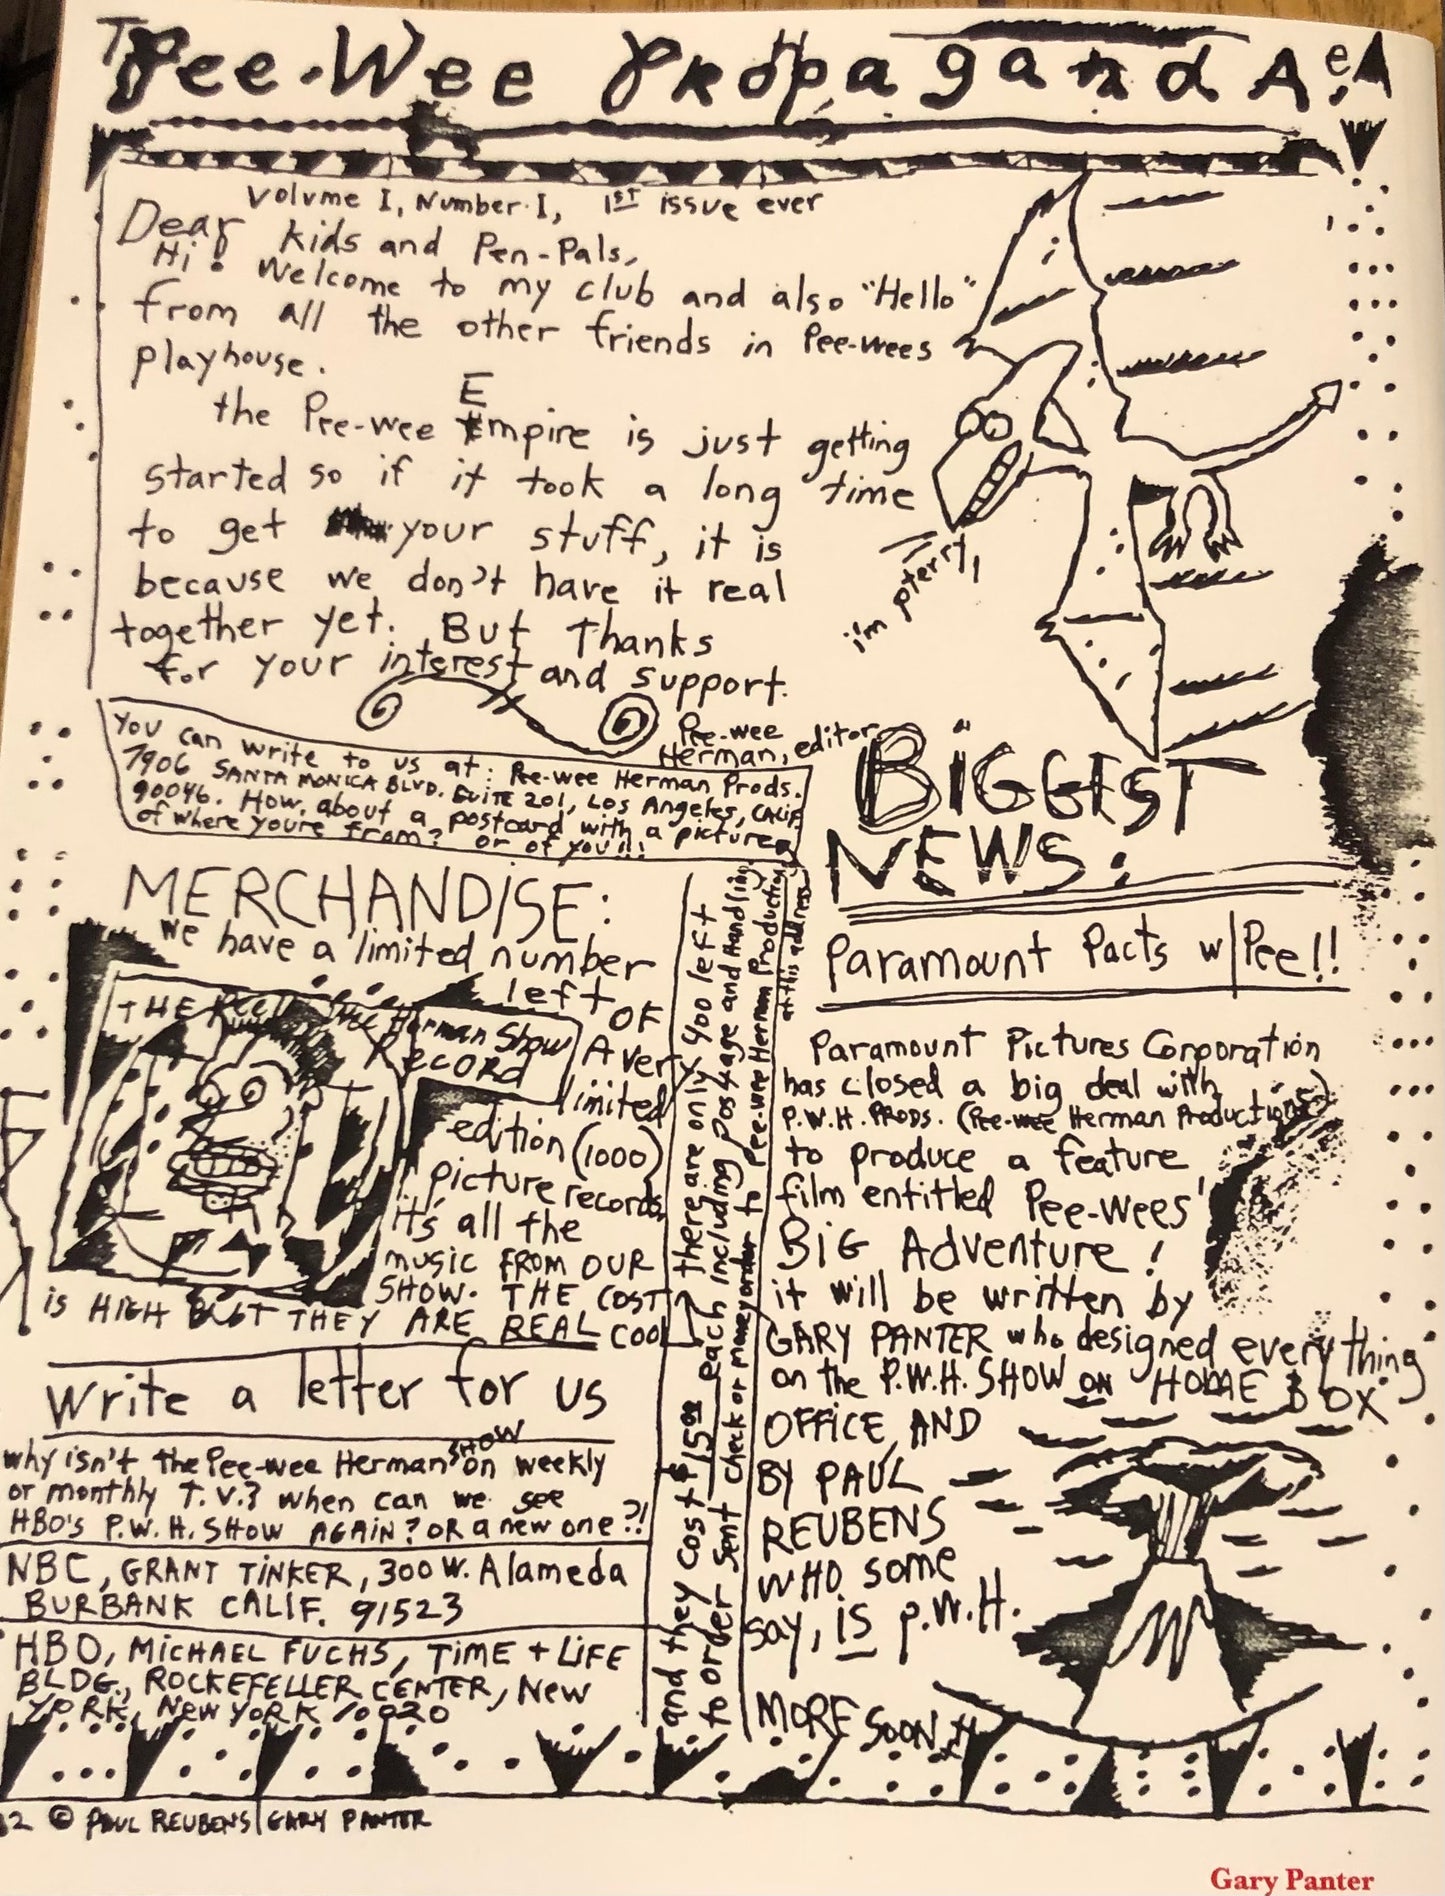 The Pee-Wee PropagandA
Volume I, Number I, 1ST issue ever
Dear kids and Pen-Pals,
Hi! Welcome to my club and also "Hello"
from all the other friends in Pee-wees
playhouse.
the Pee-wee Empire is just getting
started so if it took a long time
to get your stuff, it is
because we don't have it real
together yet. But Thanks
for your interest and support.
Pee-wee
Herman, editor
i'm pterry!
You can write to us at: Pee-wee Herman Prods.
7906 SANTA MONICA BLVD. SUITE 201, Los Angeles, CALIF.
90046. How about a postcard with a picture
of where youre from? or of you!!!
MERCHANDISE:
we have a limited number
left OF
THE Pee-wee Herman Show
RECORD
A very
limited
edition (1000)
picture records
it's all the
music FROM OUR
SHOW. THE COST
is HIGH BUT THEY ARE REAL cool
there are only 400 left
and they cost $15.00 each including postage and Handling
to order sent check or money order to Pee-wee Herman Productions
at this address
Write a letter for us
why isn't the Pee-wee Herman SHOW on weekly
or monthly T.V.? when can we see
HBO's P.W.H. SHOW AGAIN? OR a new one?!
NBC, GRANT TINKER, 300 W. Alameda
BURBANK CALIF. 91523
HBO, MICHAEL FUCHS, TIME + LIFE
BLDG., ROCKEFELLER CENTER, New
YORK, New YORK 10020
BIGGEST
NEWS:
Paramount Pacts w/Pee!!
Paramount Pictures Corporation
has closed a big deal with
P.W.H. PRODS. (Pee-wee Herman Productions)
to produce a feature
film entitled Pee-Wees'
BIG Adventure!
it will be written by
GARY PANTER who designed everything
on the P.W.H. SHOW ON HOME BOX
OFFICE AND
BY PAUL
REUBENS
WHO some
say, IS P.W.H.
MORE SOON
82 © PAUL REUBENS/GARY PANTER
Gary Panter